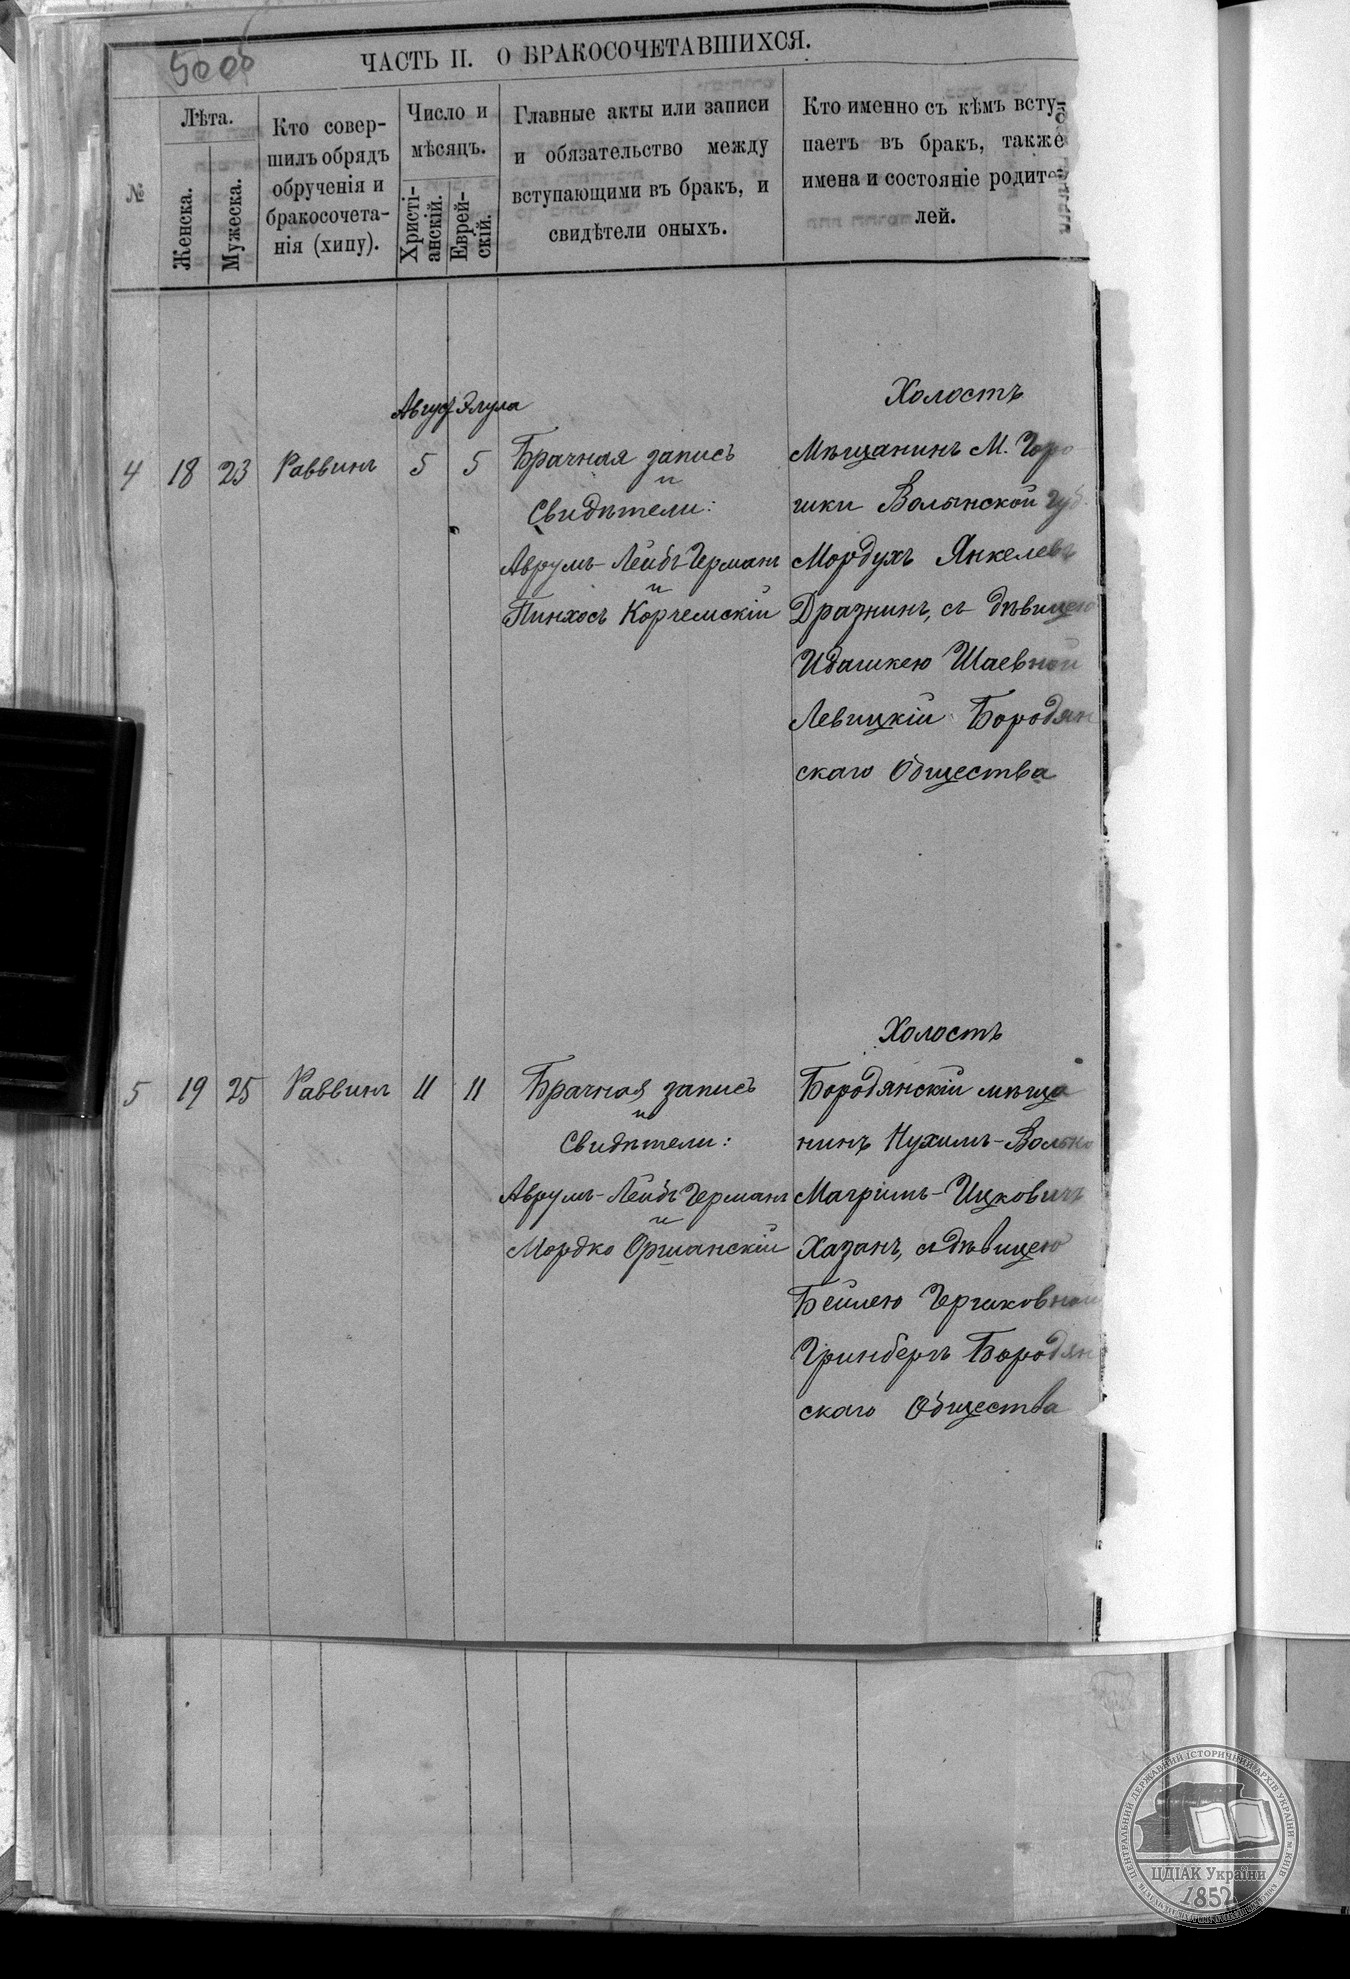 500б
ЧАСТЬ II. О БРАКОСОЧЕТАВШИХСЯ.
№
Лѣта.
Женска.
Мужеска.
Кто совер-
шилъ обрядъ
обрученія и
бракосочета-
нія (хипу).
Число и
мѣсяцъ.
Христі-
анскій.
Еврей-
скій.
Главные акты или записи
и обязательство между
вступающими въ бракъ, и
свидѣтели оныхъ.
Кто именно съ кѣмъ всту-
паетъ въ бракъ, также
имена и состояніе родите-
лей.
Август Элула
4 18 23 Раввинъ 5 5
Брачная запись
и
Свидѣтели:
Аврумъ-Лейбъ Германъ
и
Пинхосъ Корчемскій
Холостъ
Мѣщанинъ М. Горо
шки Волынской губ.
Мордухъ Янкелевъ
Дразнинъ, съ дѣвицею
Идашкею Шаевной
Левицкій Бородян
скаго Общества
5 19 25 Раввинъ 11 11
Брачная запись
и
Свидѣтели:
Аврумъ-Лейбъ Германъ
и
Мордко Оршанскій
Холостъ
Бородянскій мѣща
нинъ Нухимъ-Волько
Магримъ-Ицковичъ
Хазанъ, съ дѣвицею
Бейлею Гершковной
Гринбергъ Бородян
скаго Общества
ЦЕНТРАЛЬНИЙ ДЕРЖАВНИЙ ІСТОРИЧНИЙ АРХІВ УКРАЇНИ м. КИЇВ
ЦДІАК України
1852